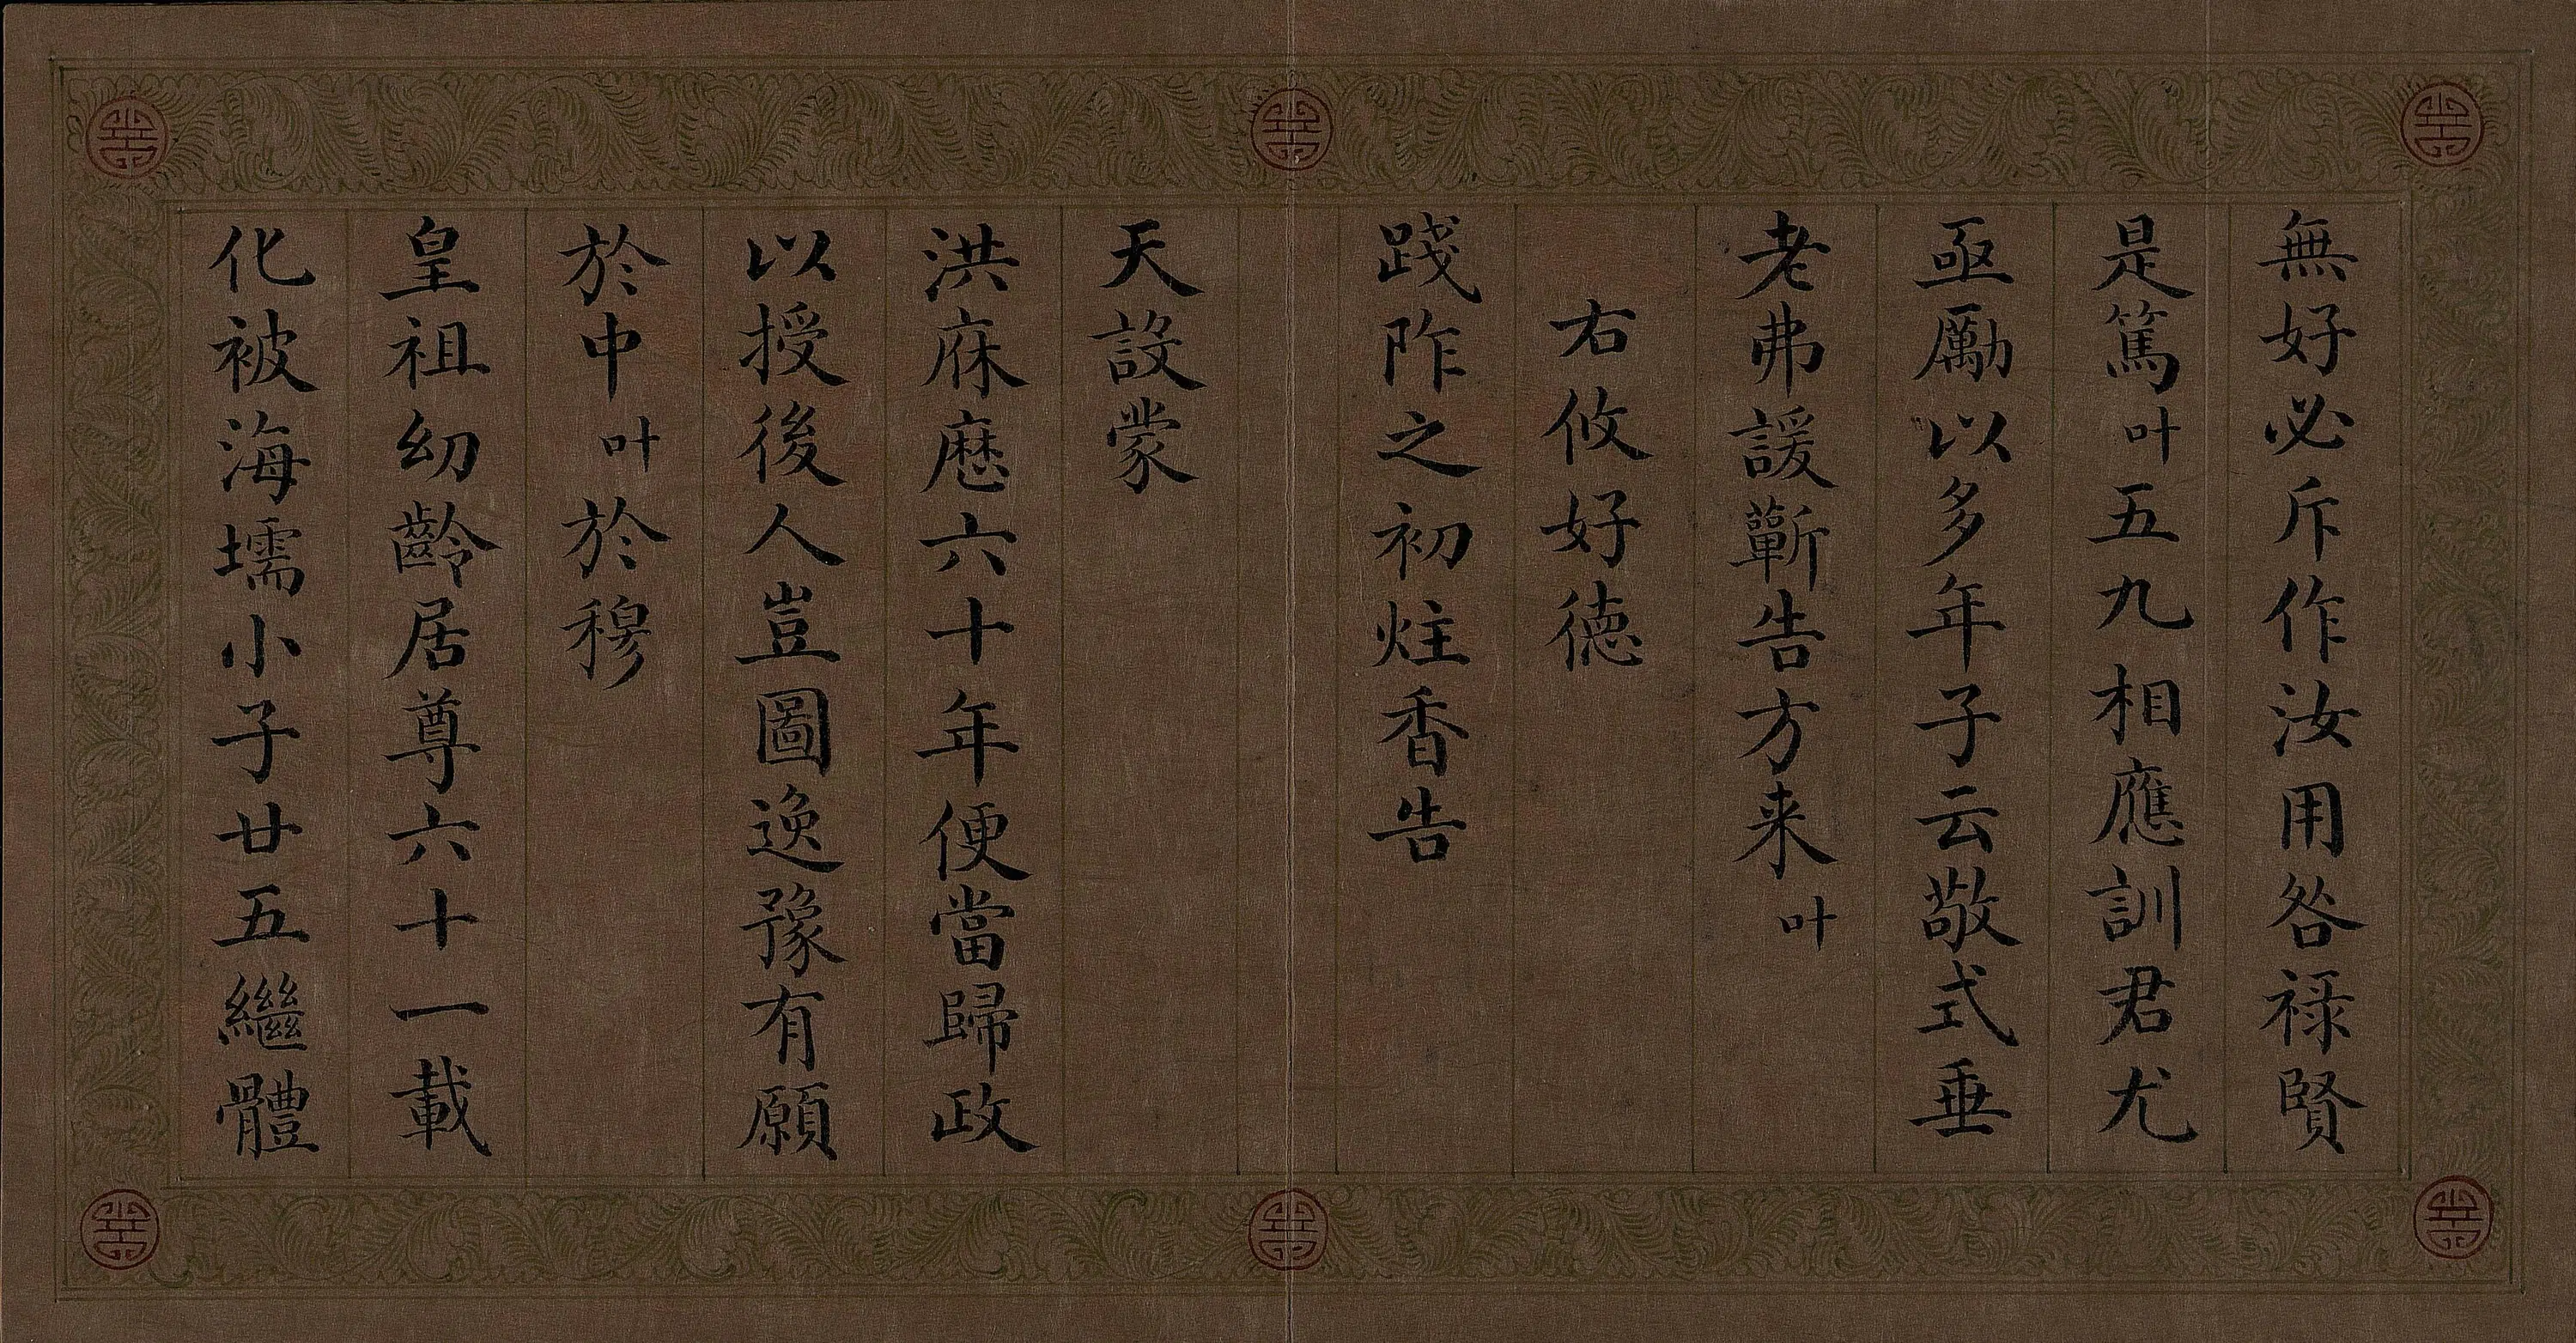 無好必斥作汝用咎祿賢
是篤叶五九相應訓君尤
亟勵以多年子云敬式垂
老弗諼蘄告方来叶
右攸好德
踐阼之初炷香告
天設蒙
洪庥歷六十年便當歸政
以授後人豈圖逸豫有願
於中叶於穆
皇祖幼齡居尊六十一載
化被海壖小子廿五繼體